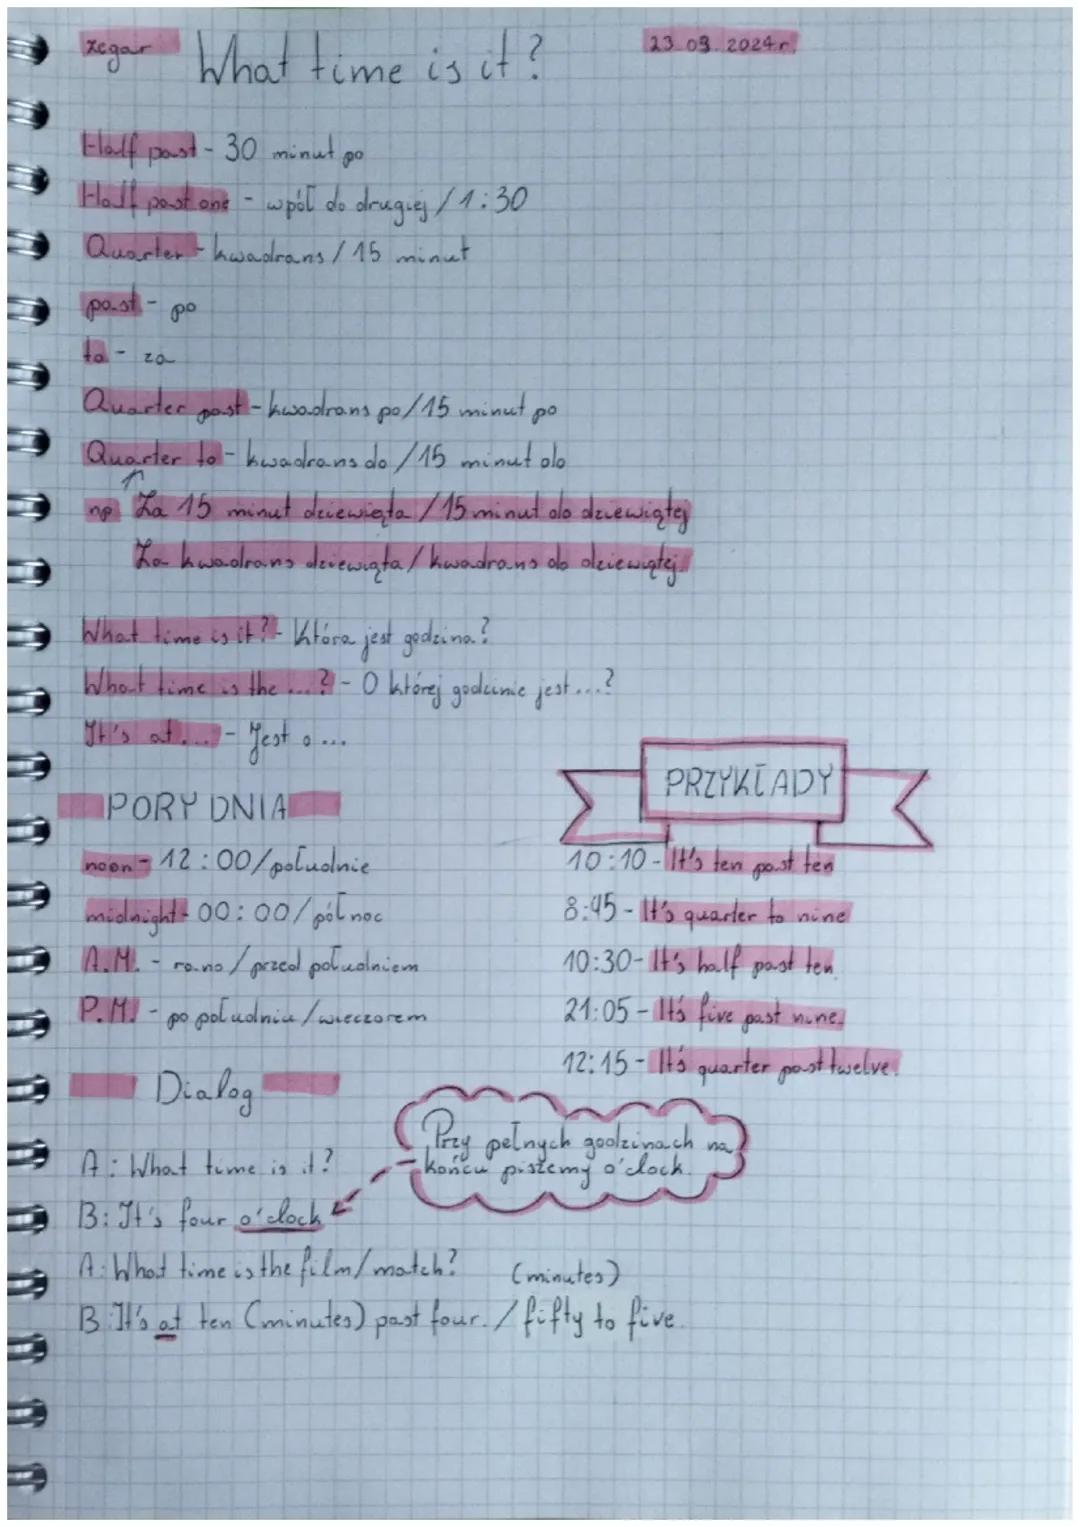 zegar
What time is it?
23.09.2024r.
Half past - 30 minut po
Half past one - wpół do drugiej / 1:30
Quarter - kwadrans / 15 minut
past - po
to - za
Quarter past - kwadrans po/15 minut po
Quarter to - kwadrans do /15 minut do
np Za 15 minut dziewiąta /15 minut do dziewiątej
Za kwadrans dziewiąta / kwadrans do dziewiątej
What time is it? - Która jest godzina?
What time is the ...? - O której godzinie jest...?
It's at ... - Jest o ...
PORY DNIA
noon - 12:00/południe
midnight - 00:00/północ
A.M. - rano/przed południem
P.M. - po południu/wieczorem
PRZYKŁADY
10:10 - It's ten past ten
8:45 - It's quarter to nine
10:30 - It's half past ten.
21:05 - It's five past nine.
12:15 - It's quarter past twelve.
Dialog
Przy pełnych godzinach na
końcu piszemy o'clock.
A: What time is it?
B: It's four o'clock
A: What time is the film/match?
(minutes)
B: It's at ten (minutes) past four. / fifty to five.